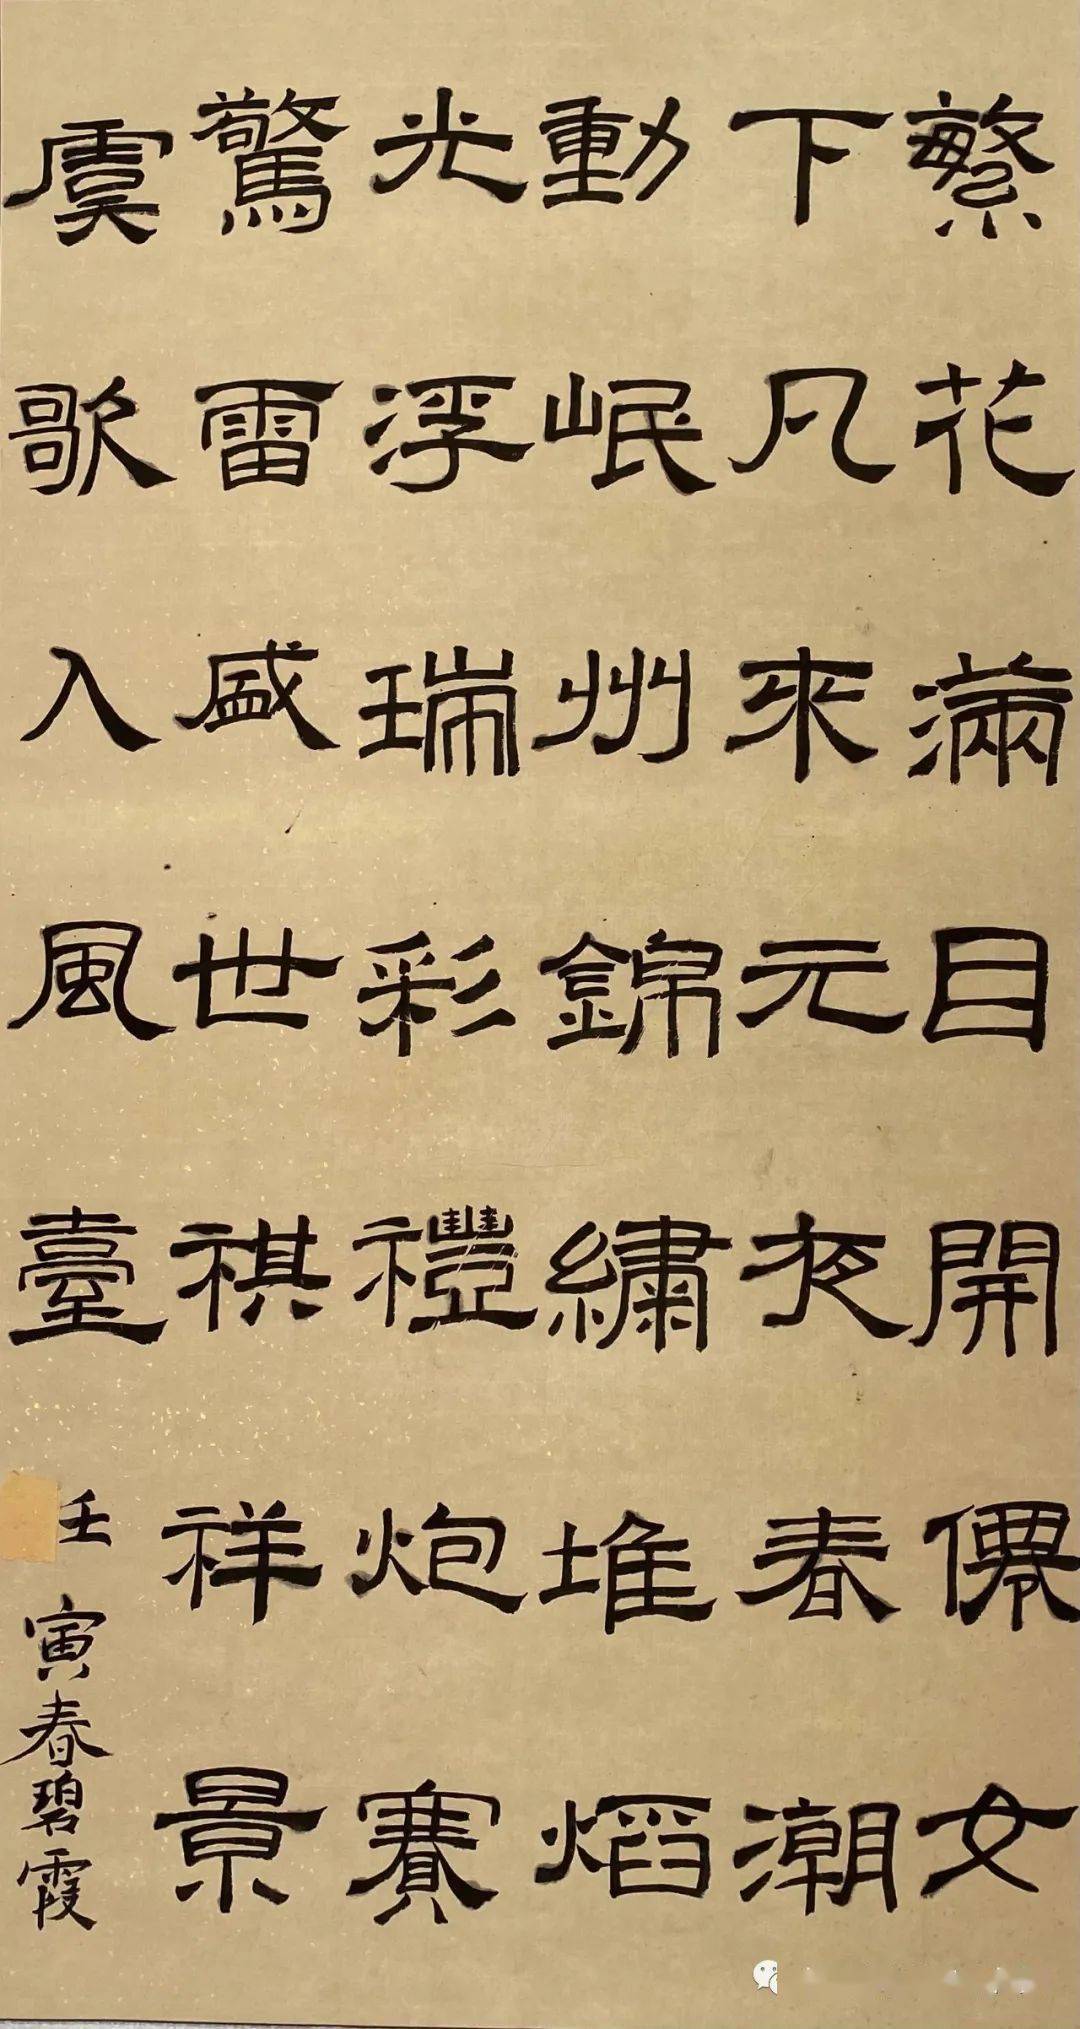 繁花滿目開僊女
下凡來元夜春潮
動岷州錦繡堆熖
光浮瑞彩禮炮賽
驚雷盛世祺祥景
虞歌入風臺
壬寅春碧霞